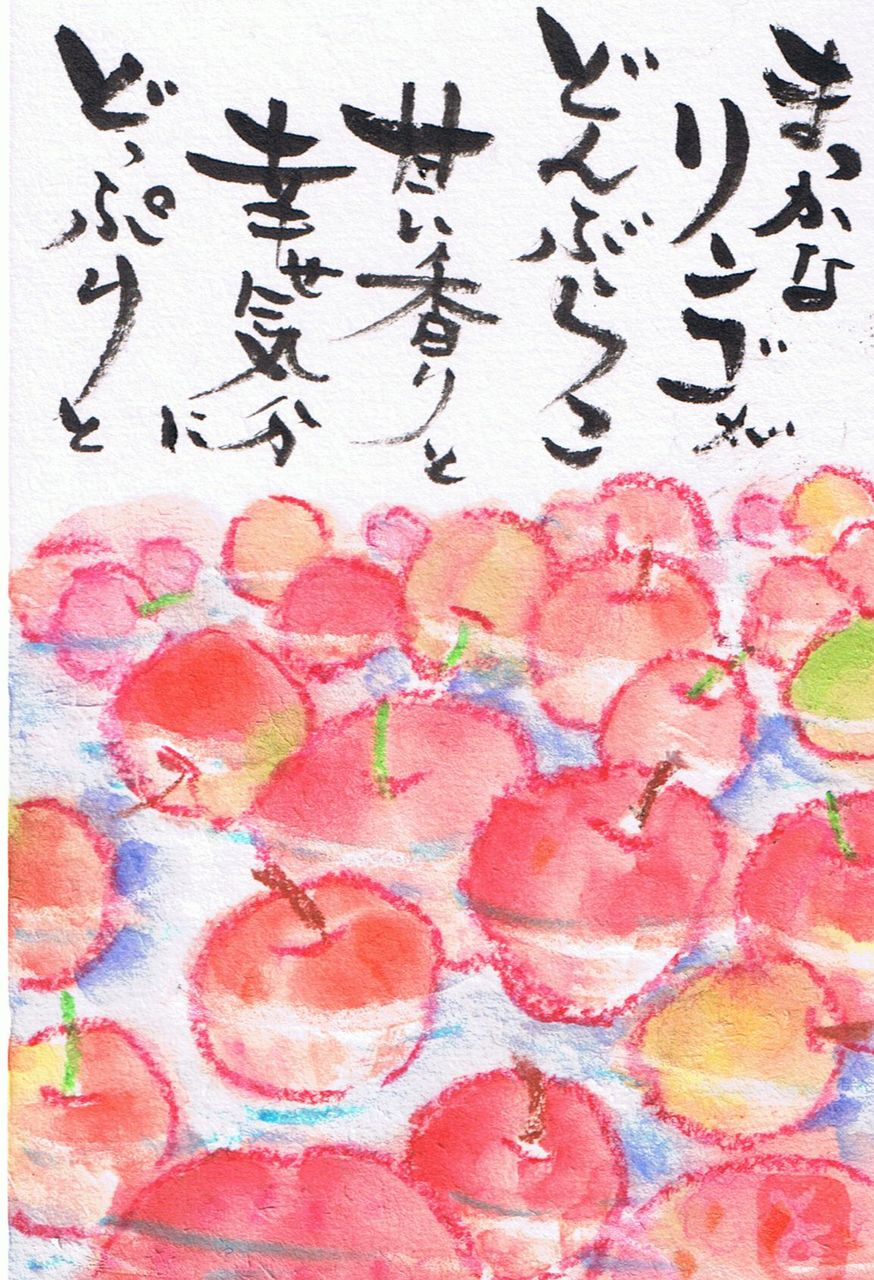 まっかな
リンゴが
どんぶらこ
甘い香りと
幸せ気分
に
どっぷりと